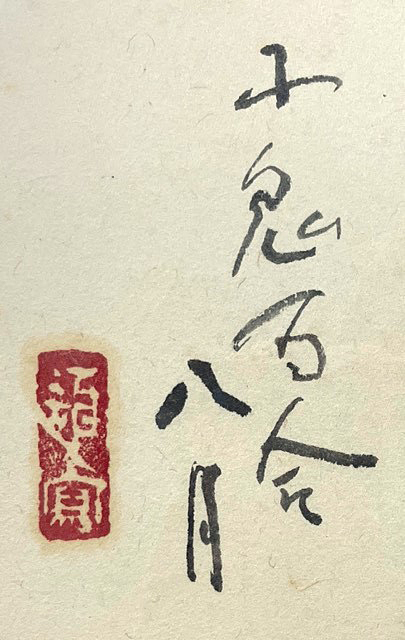 小鬼百合
八月